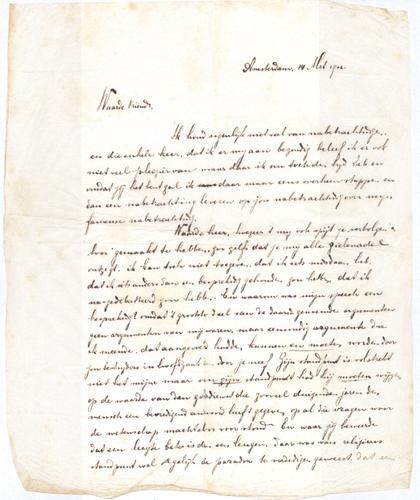 Amsterdam, 14 Mei
Waarde Vriend,
Ik houd eigenlijk niet veel van nabetrachtingen
en die enkele keer, dat ik er my aan bezondig beleef ik er ook
niet veel plezier van maar daar ik nu toch de tyd heb en
omdat jij het bent zal ik maar daar maar eens overheen stappen en
dan een nabetrachting leveren op jou nabetrachting over myn
fameuse nabetrachting.
Waarde heer, hoezeer 't my ook spijt je verbolgen
boos gemaakt te hebben, zoo zelfs dat je my alle
ontzegt, ik kan toch niet toegeven, dat ik iets misdaan heb,
dat ik iets anders dan een bespreking gehouden zou hebben, dat ik
zou hebben. En waarom was mijn speech een
bespreking? omdat 't grootste deel van de daarin genoemde argumenten
geen argumenten van my waren, maar eenvoudig argumenten die
ik meende, dat aangevoerd hadden kunnen en moeten worden door
door je neef. Zijn standpunt is volstrekt
niet het mijne maar van zijn standpunt had hij moeten wijzen
op de waarde van den godsdienst die zooveel duizenden jaren den
mensch een bevredigend antwoord heeft gegeven op al die vragen waar
de wetenschap machteloos voor stond. En waar jij beweerde
dat een leegte beter is dan een leugen, daar was van religieus
standpunt wel degelijk de paradox te verdedigen geweest, dat een